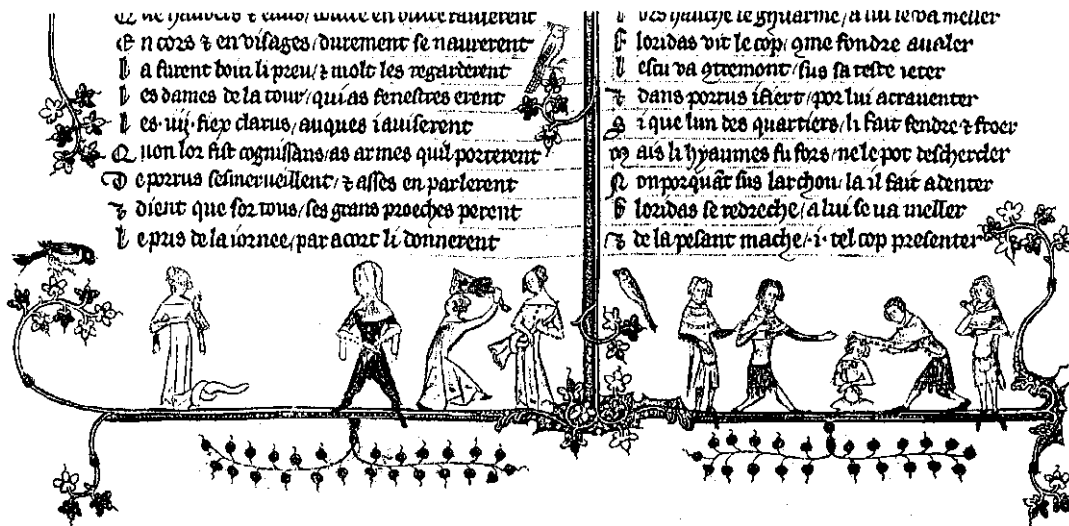 Q ue haubers & elms / luire en
E n cors & en visages / durement se naurerent
l a furent boin li preu / & molt les regarderent
l es dames de la tour / qui as fenestres erent
l es .iiij. fiex clarus / auques i aviserent
Q uon lor fist cognissans / as armes quil porterent
D e porrus sesmerueillent / & asses en parlerent
& dient que sor tous / ses grans proeches perent
l e pris de la iornee / par acort li donnerent
le / a lui se va meller
F loridas vit le cop / 9me fondre aualer
l escu va 9tremont / sus sa teste ieter
& dans porrus i fiert / por lui acrauenter
S i que lun des quartiers / li fait fendre & froer
M ais li hyaumes fu fors / ne le pot
N on porquāt sus larchon / la il fait adenter
F loridas se redreche / a lui se va meller
& de la pesant mache / .i. tel cop presenter